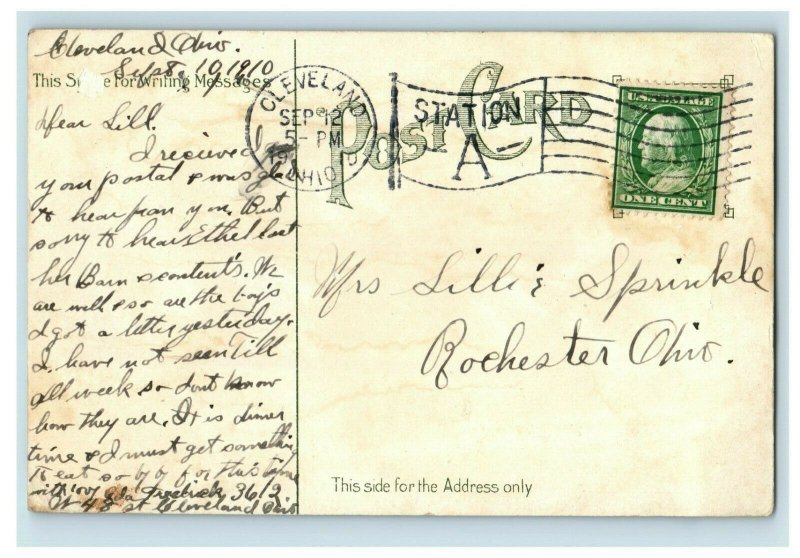 Cleveland Ohio.
Sept 10, 1910
This Space for Writing Messages
Dear Lill.
I recieved
your postal & was glad
to hear from you. But
sorry to hear Ethel lost
her Barn & contents. We
are well & so are the boys
I got a letter yesterday.
I have not seen Till
all week so dont know
how they are. It is dinner
time & I must get something
to eat so by by for this time
with love Ida 3612
W 48 st Cleveland Ohio
CLEVELAND
SEP 12
5- PM
1910
OHIO
STATION
A
POST CARD
U.S. POSTAGE
ONE CENT
Mrs Lillie Sprinkle
Rochester Ohio.
This side for the Address only